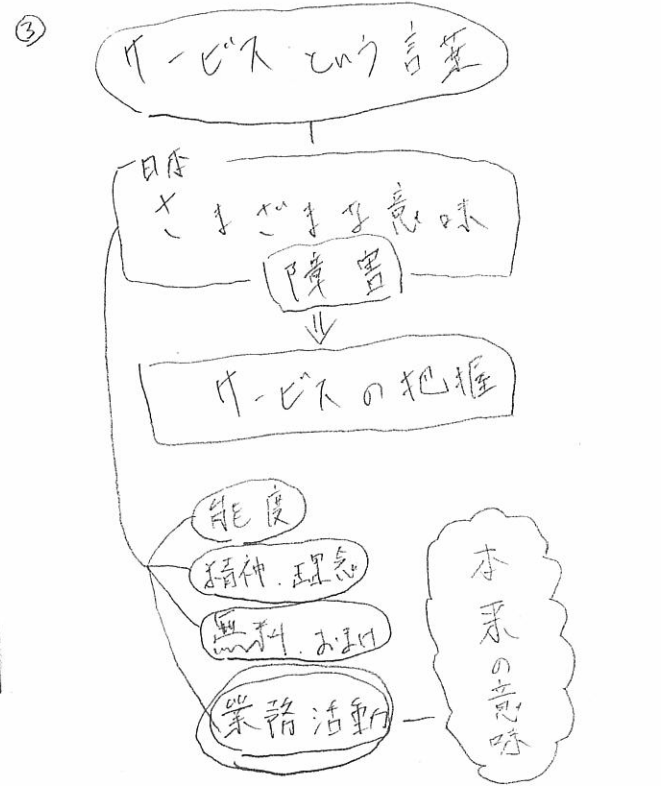 ③
サービスという言葉
日本
さまざまな意味
障害
サービスの把握
態度
精神・理念
無料・おまけ
業務活動
本来の意味